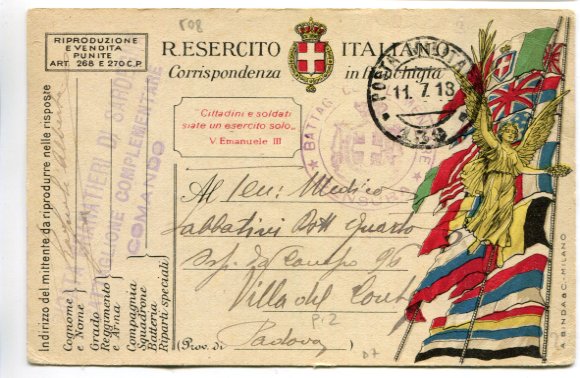 508
RIPRODUZIONE
E VENDITA
PUNITE
ART. 268 E 270 C.P.
R. ESERCITO ITALIANO
Corrispondenza in franchigia
POSTA MILITARE
11.7.18
Cittadini e soldati
siate un esercito solo..
V. Emanuele III
BATTAG
Al Ten: Medico
Sabbatini Dott Quarto
Osp. da Campo 96
Villa del Conte
P:2
(Prov. di Padova)
D7
Indirizzo del mittente da riprodurre nelle risposte
Cognome e Nome
Grado
Reggimento e Arma
Compagnia
Squadrone
Batteria
Riparti speciali
GRANATIERI DI SARD
BATTAGLIONE COMPLEMENTARE
COMANDO
A. BINDA & C. - MILANO